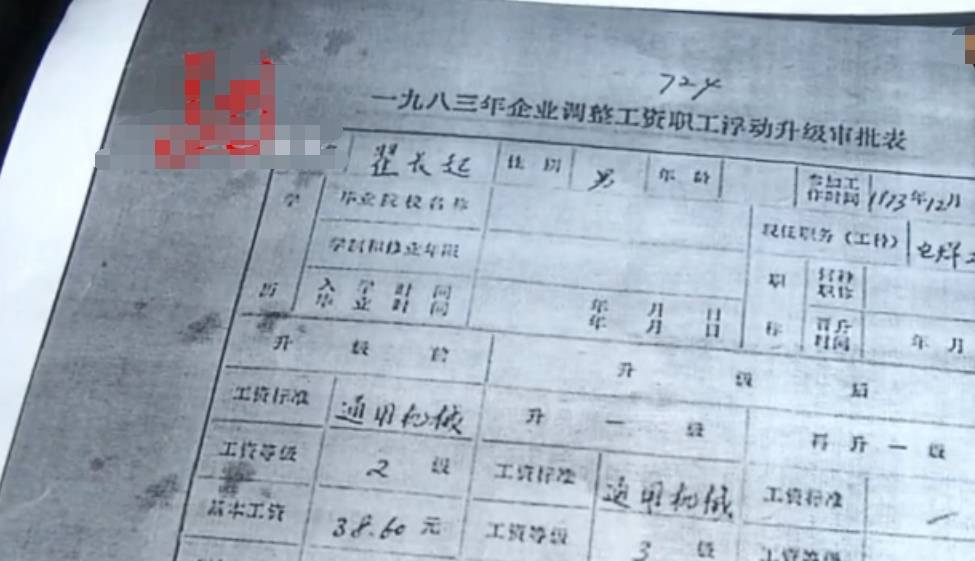 724
一九八三年企业调整工资职工浮动升级审批表
翟长起 性别 男 年龄 参加工作时间 1973年12月
学历 毕业院校名称 现任职务（工种） 电焊工
学制和修业年限 职称
入学时间 年 月 日
毕业时间 年 月 日 晋升时间 年 月
升级前 升级后
工资标准 通用机械 升一级 再升一级
工资等级 2级 工资标准 通用机械 工资标准
基本工资 38.60元 工资等级 3级 工资等级